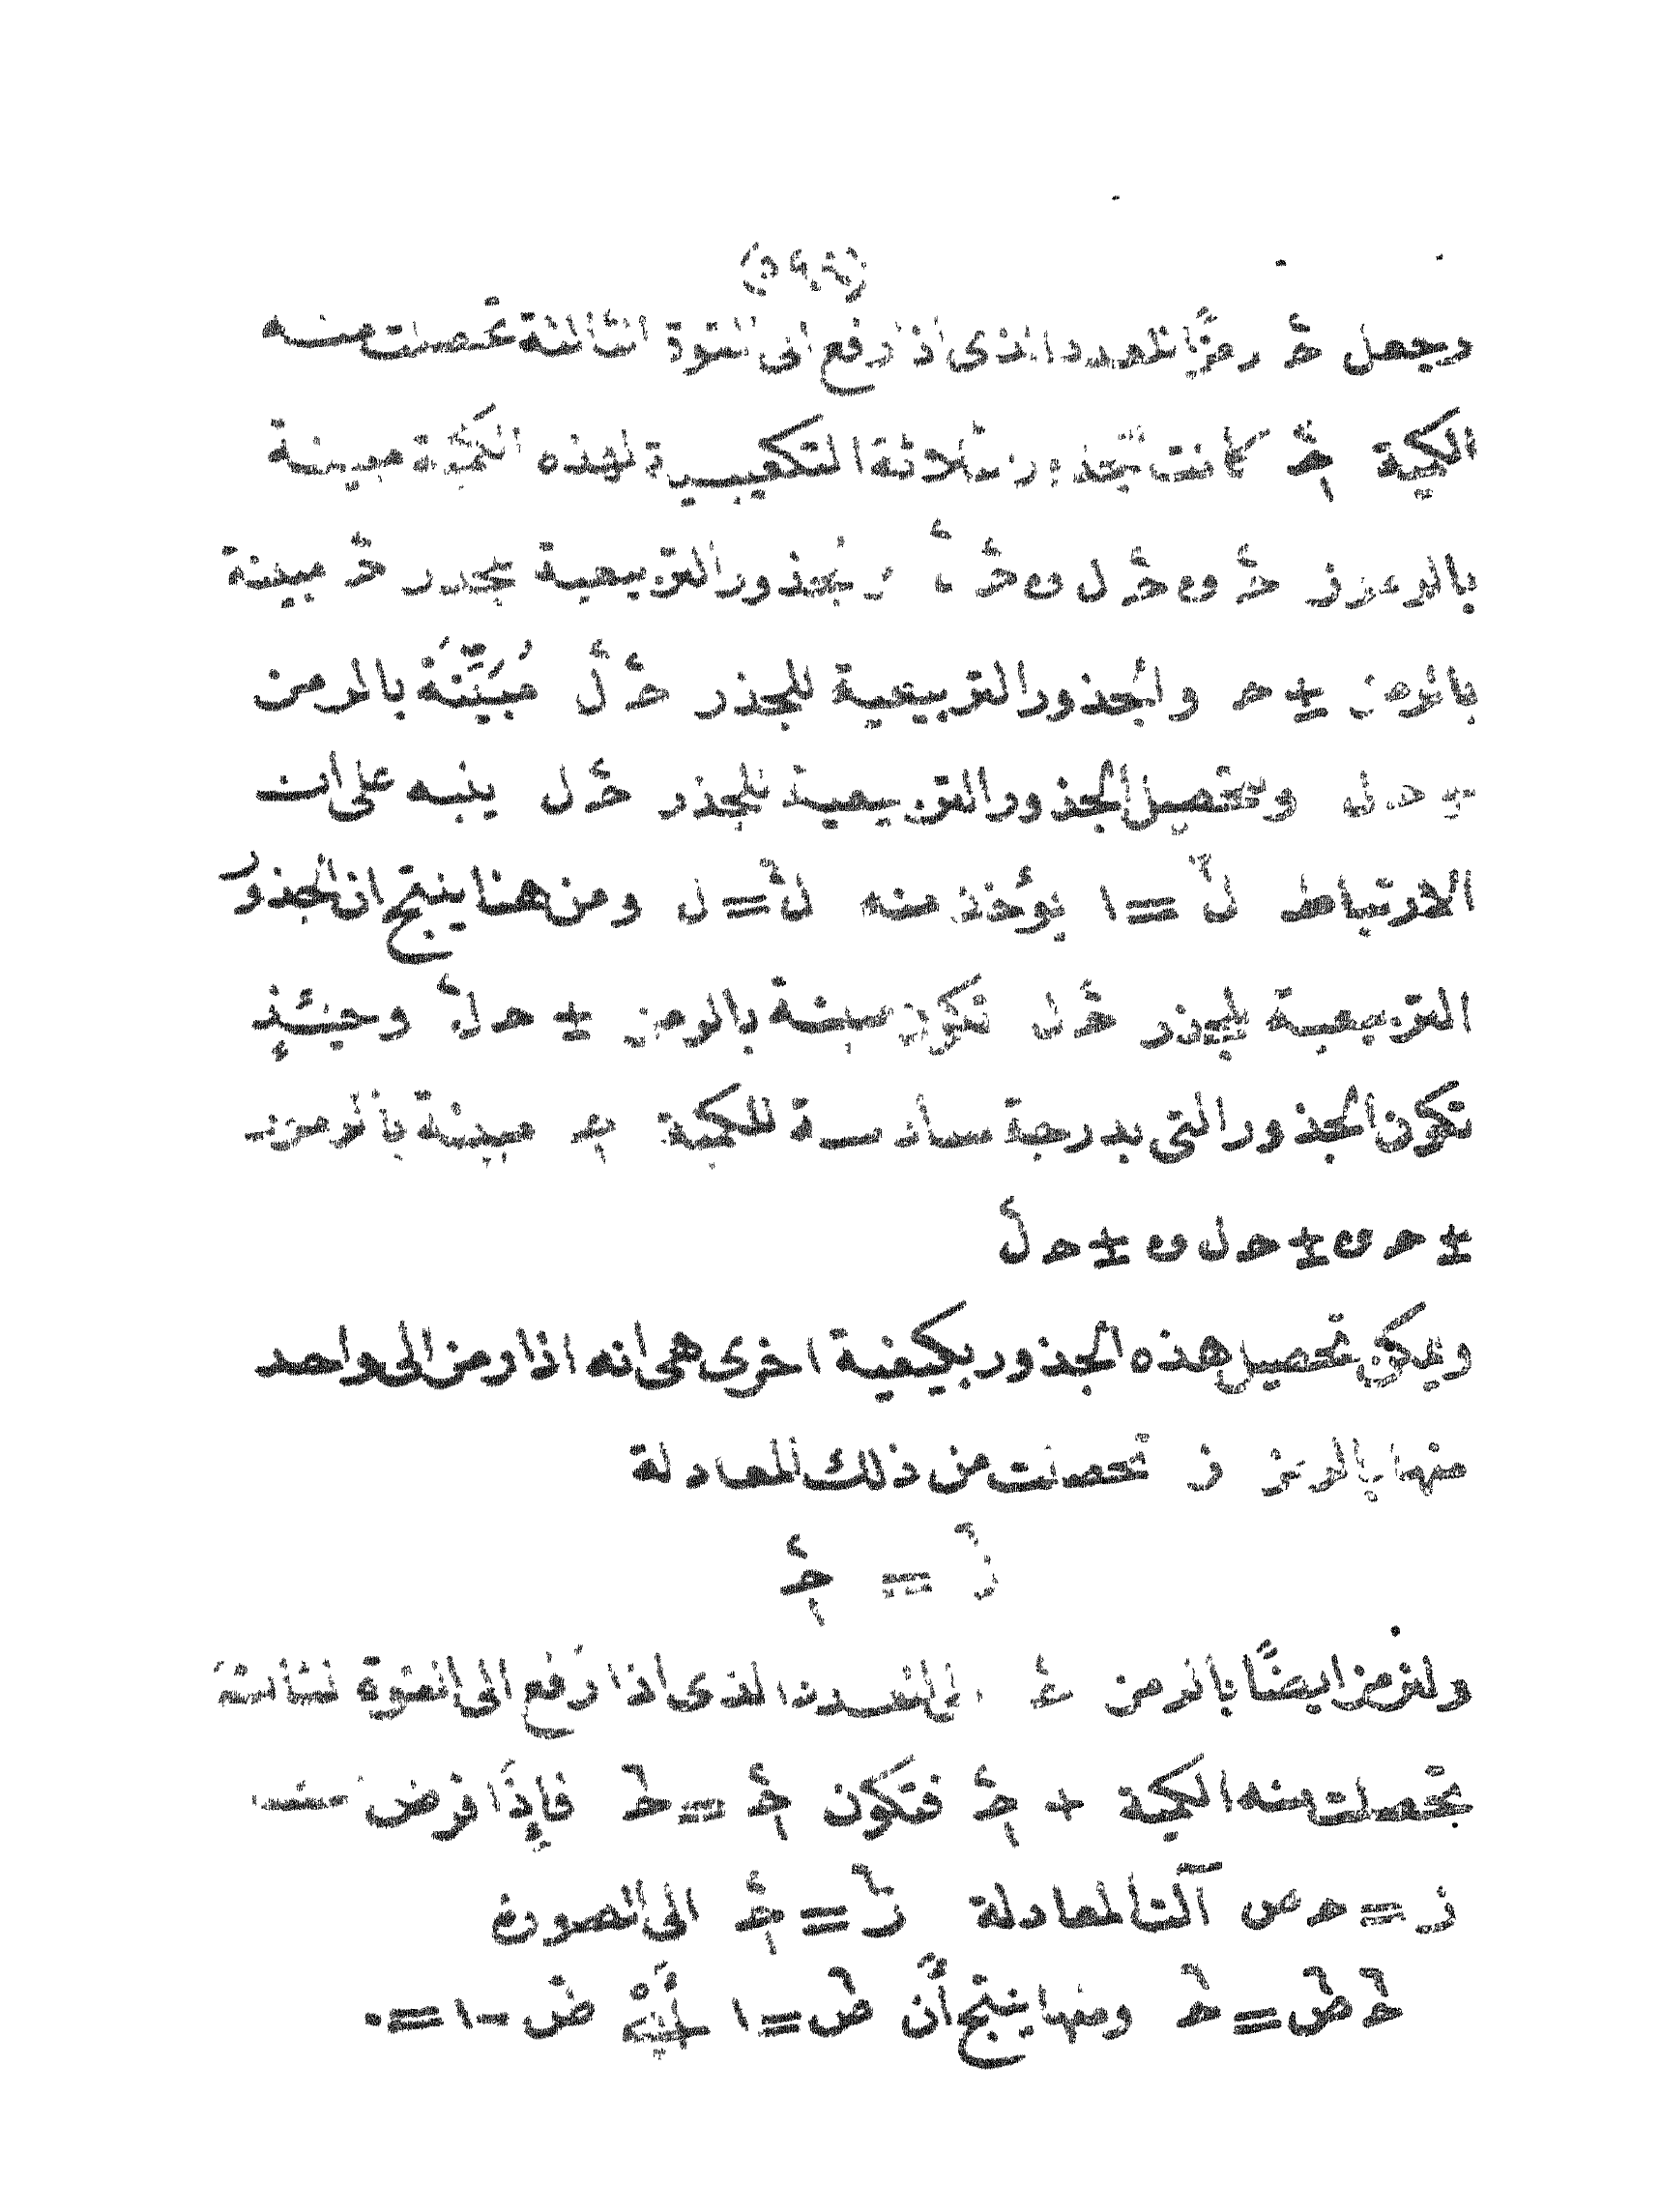 وجعل حـ٢ رمزا للعدد الذى اذا رفع الى القوة الثالثة تحصلت منه
الكمية حـ٢ كانت الجذور الثلاثة التكعيبية لهذه الكمية مبينة
بالرموز حـ٢ و حـ٢ ل و حـ٢ ل٢ والجذور التربيعية للجذر حـ٢ مبينة
بالرمز ± حـ والجذور التربيعية للجذر حـ٢ ل٢ مُبَيَّنَة بالرمز
± حـ ل وتحصيل الجذور التربيعية للجذر حـ٢ ل ينبه على ان
الارتباط ل٣ = ١ يؤخذ منه ل٤ = ل ومن هنا ينتج ان الجذور
التربيعية للجذر حـ٢ ل تكون مبينة بالرمز ± حـ ل٢ وحينئذٍ
تكون الجذور التى بدرجة سادسة للكمية مبينة بالرموز
± حـ و ± حـ ل و ± حـ ل٢
ويمكن تحصيل هذه الجذور بكيفية اخرى هى انه اذا رمز الى واحد
منها بالرمز ز تحصلت من ذلك المعادلة
ز٦ = حـ٢
ولنرمز ايضًا بالرمز الى العدد الذى اذا رفع الى القوة الثالثة
تحصلت منه الكمية + حـ٢ فتكون حـ٢ = حـ٦ فإِذَا فرض
ز = حـ ص آلت المعادلة ز٦ = حـ٢ الى الصورة
حـ٦ ص٦ = حـ٦ ومنها ينتج أن ص٦ = ١ ص٦ - ١ = ٠